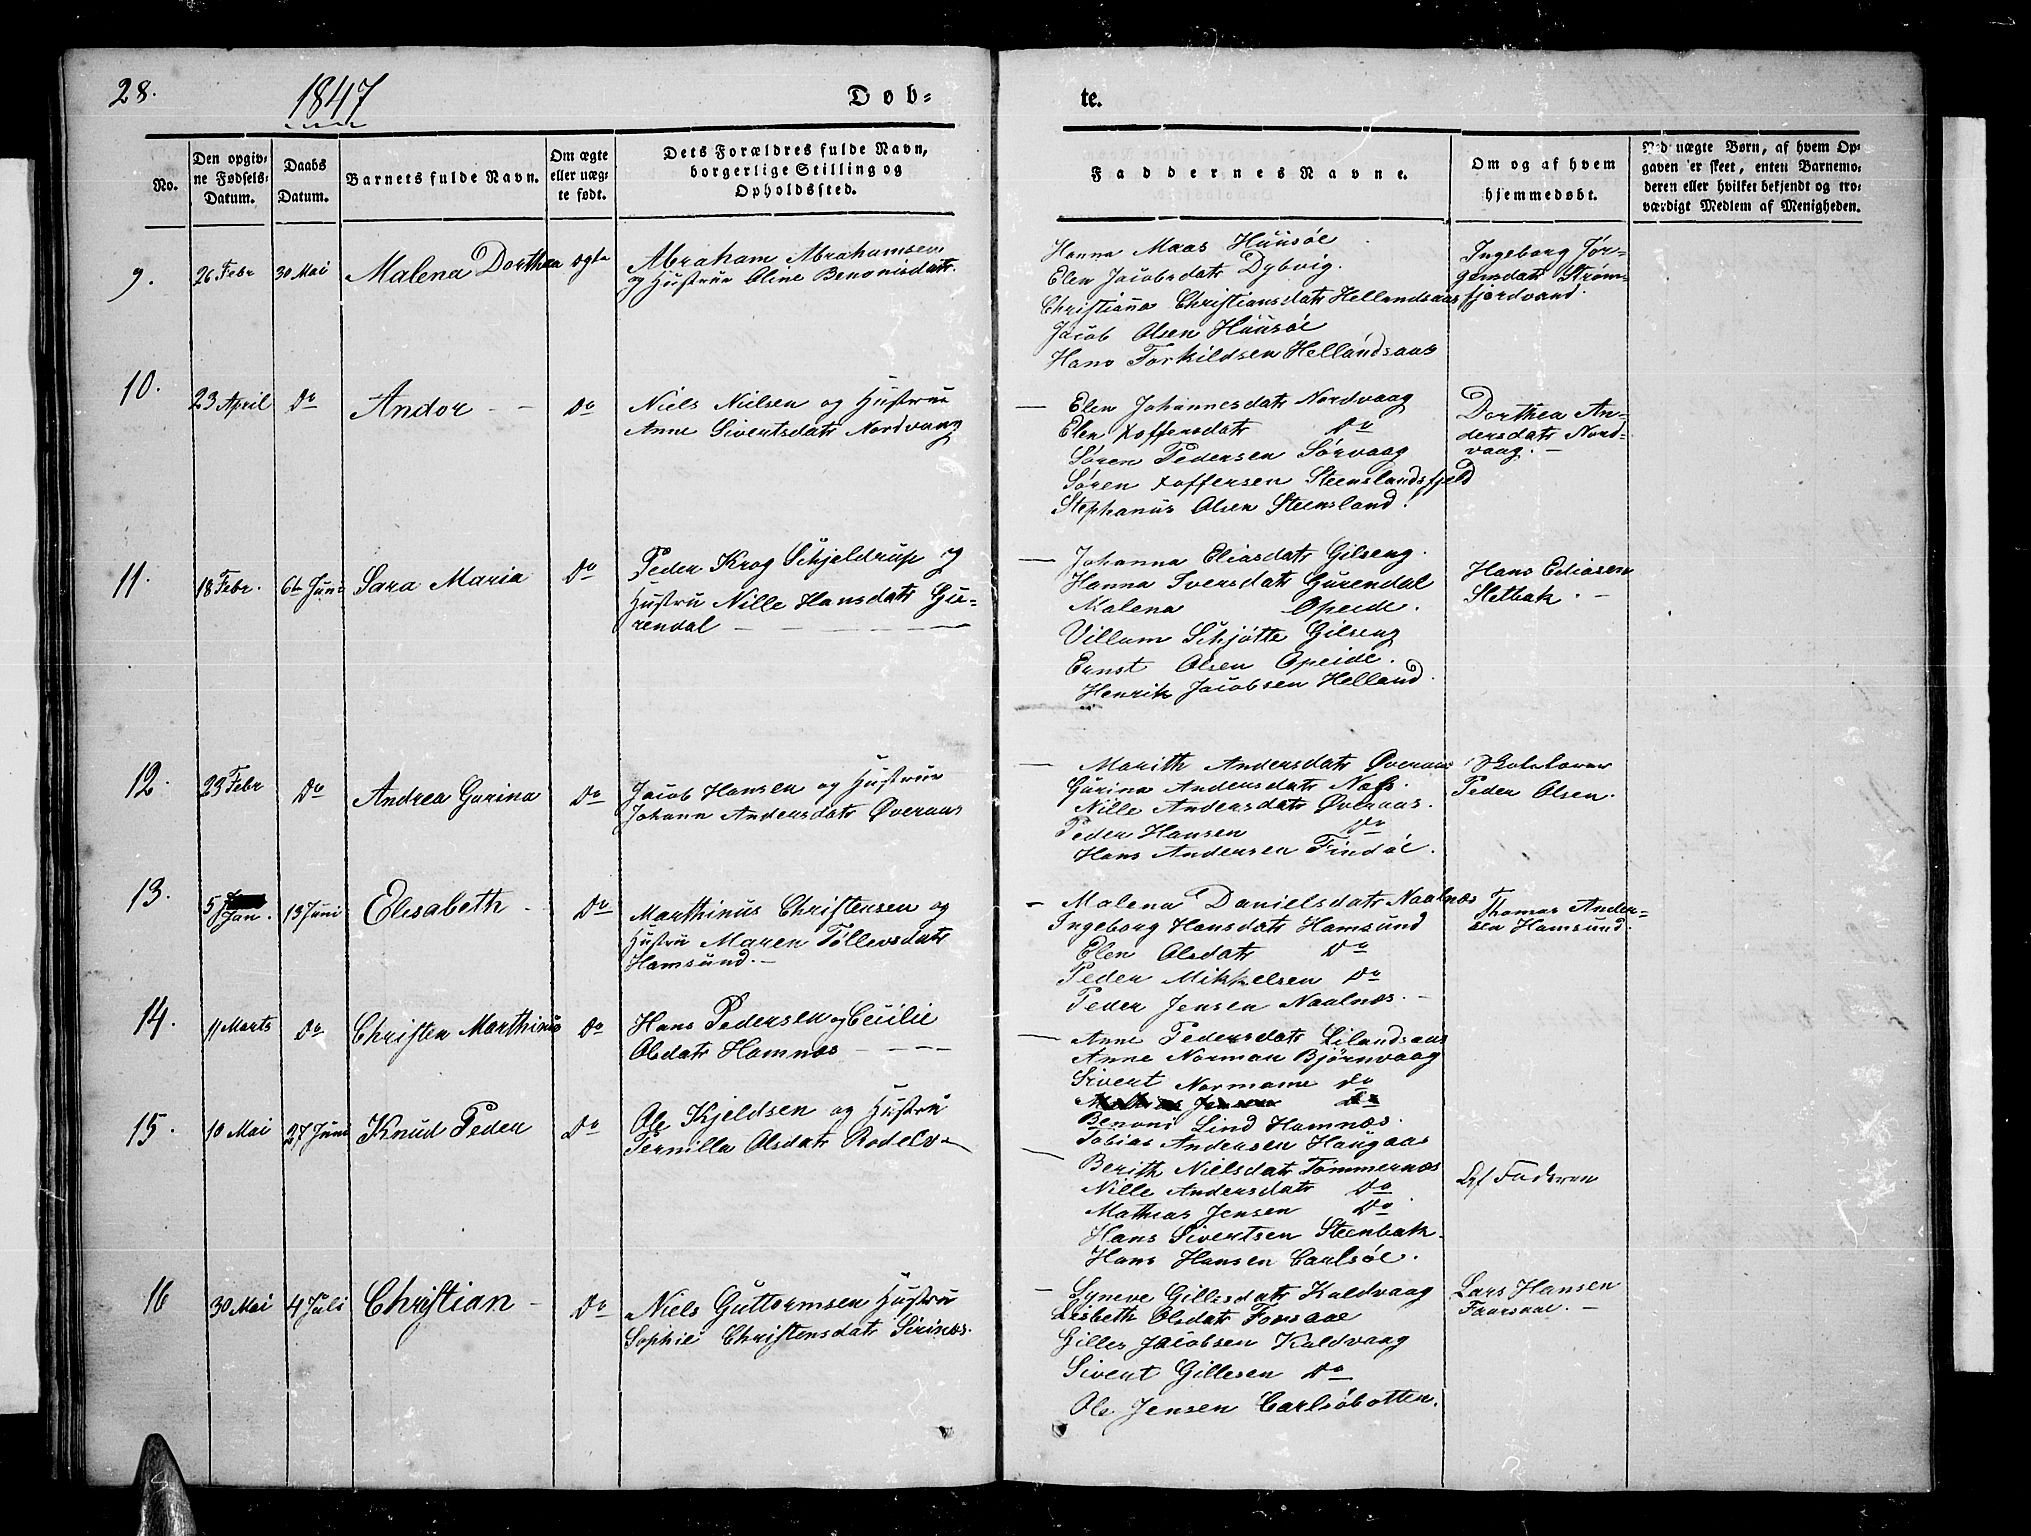 28.
1847
Døb-
te.
No.
Den opgiv-
ne Fødsels-
Datum.
Daabs
Datum.
Barnets fulde Navn.
Om ægte
eller uæg-
te født.
Dets Forældres fulde Navn,
borgerlige Stilling og
Opholdssted.
Faddernes Navne.
Om og af hvem
hjemmedøbt.
Ved uægte Børn, af hvem Op-
gaven er skeet, enten Barnemo-
deren eller hvilket bekjendt og tro-
værdigt Medlem af Menigheden.
9.
26 Febr
30 Mai
Malena Dorthea
ægte
Abraham Abrahamsen
og Hustrue Oline Benonisdatr.
Hanna Maas Huusøe
Elen Jacobsdatr Dybvig.
Christiana Christiansdatr Hellandsaas
Jacob Olsen Huusøe
Hans Torkildsen Hellandsaas
Ingeborg Jør-
gensdatr Strøm-
fjordvand.
10.
23 April
Do
Andor -
Do
Niels Nielsen og Hustrue
Anne Sivertsdatr Nordvaag
— Elen Johannesdatr Nordvaag
Elen Xoffersdatr Do
Søren Pedersen Sørvaag
Søren Xoffersen Steenslandsfjeld
Stephanus Olsen Steensland.
Dorthea An-
dersdatr Nord-
vaag. —
11.
18 Febr.
6te Juni
Sara Maria
Do
Peder Krog Schjeldrup og
Hustru Nille Hansdatr Gu-
rendal — — —
— Johanna Eliasdatr Gilseng.
Hanna Iversdatr Gurendal
Malena Opeide.
Villum Schjøtte Gilseng
Ernst Olsen Opeide.
Henrik Jacobsen Helland.
Hans Eliasen
Sletbak. —
12.
23 Febr
Do
Andrea Gurina
Do
Jacob Hansen og Hustrue
Johann Andersdatr Øveraas
— Marith Andersdatr Øveraas
Gurina Andersdatr Næs.
Nille Andersdatr Øveraas.
Peder Hansen Do
Hans Andersen Findøe.
Skolelærer
Peder Olsen.
13.
5 Jan.
13 Juni
Elisabeth -
Do
Marthinus Christensen og
Hustru Maren Tøllevsdatr
Hamsund. —
— Malena Danielsdatr Naalnæs
Ingeborg Hansdatr Hamsund
Elen Olsdatr Do
Peder Mikkelsen Do
Peder Jensen Naalnæs. —
Thomas Ander-
sen Hamsund.
14.
11 Marts
Do
Christen Marthinus
Do
Hans Pedersen og Cecilie
Olsdatr Hamnæs — — —
— Anne Pedersdatr Lilandsaas
Anne Norman Bjørnvaag
Sivert Normann Do
Benoni Lind Hamnæs.
Tobias Andersen Haugaas
15.
10 Mai
27 Juni
Knud Peder
Do
Ole Kjeldsen og Hustru
Pernilla Olsdatr Rodelv —
— Berith Nielsdatr Tømmernæs
Nille Andersdatr Do
Mathias Jensen Do
Hans Sivertsen Steenbak.
Hans Hansen Carlsøe.
af Faderen
16
30 Mai
4 Juli
Christian —
Do
Niels Guttormsen Hustru
Sophie Christensdatr Sørinæs.
— Syneve Gillesdatr Kaldvaag
Lisbeth Olsdatr Forsaae
Gilles Jacobsen Kaldvaag
Sivert Gillesen Do
Ole Jensen Carlsöbotten.
Lars Hansen
Faarsaae. —